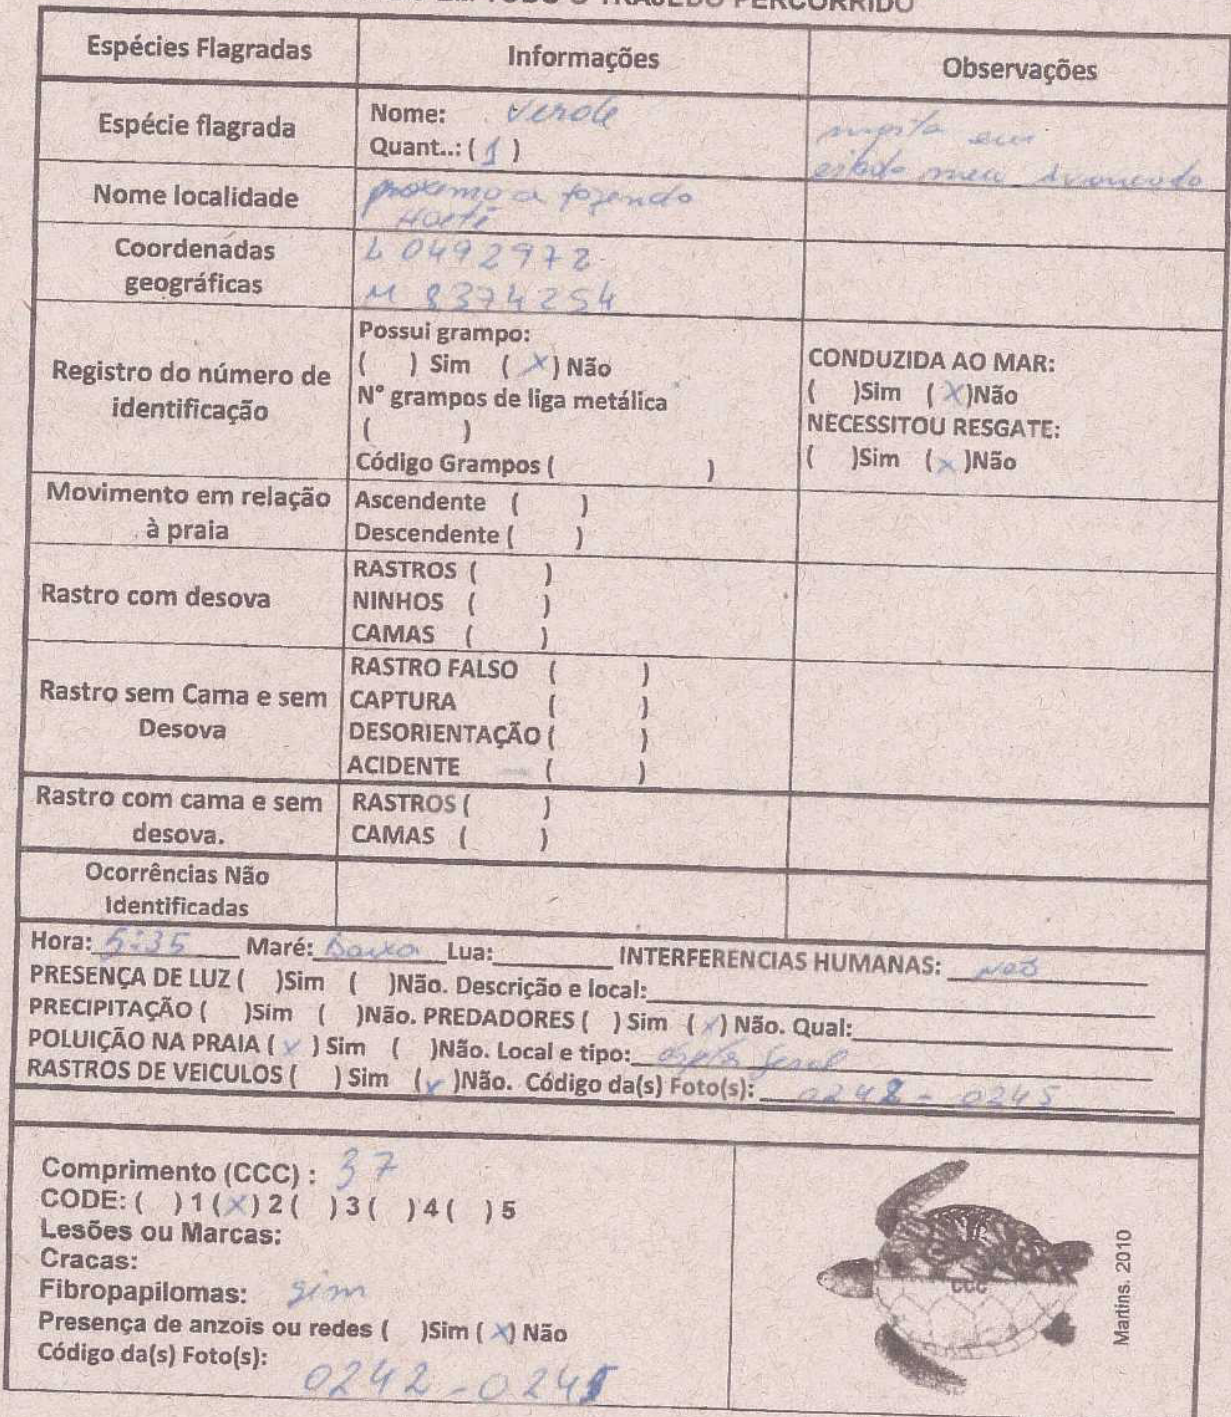 TODO O TRAJEDO PERCORRIDO
Espécies Flagradas
Informações
Observações
Espécie flagrada
Nome: Verde
Quant..: ( 1 )
morta em
estado meu avancado
Nome localidade
proximo a fazenda
Coordenádas
geográficas
L 0492972
M 8374254
Registro do número de
identificação
Possui grampo:
( ) Sim ( X ) Não
N° grampos de liga metálica
( )
Código Grampos ( )
CONDUZIDA AO MAR:
( )Sim ( X)Não
NECESSITOU RESGATE:
( )Sim ( x )Não
Movimento em relação
à praia
Ascendente ( )
Descendente ( )
Rastro com desova
RASTROS ( )
NINHOS ( )
CAMAS ( )
Rastro sem Cama e sem
Desova
RASTRO FALSO ( )
CAPTURA ( )
DESORIENTAÇÃO ( )
ACIDENTE ( )
Rastro com cama e sem
desova.
RASTROS ( )
CAMAS ( )
Ocorrências Não
Identificadas
Hora: 5:35 Maré: Baixa Lua: INTERFERENCIAS HUMANAS: não
PRESENÇA DE LUZ ( )Sim ( )Não. Descrição e local:
PRECIPITAÇÃO ( )Sim ( )Não. PREDADORES ( ) Sim ( x ) Não. Qual:
POLUIÇÃO NA PRAIA ( x ) Sim ( )Não. Local e tipo:
RASTROS DE VEICULOS ( ) Sim ( x )Não. Código da(s) Foto(s): 0242 - 0245
Comprimento (CCC) : 37
CODE: ( ) 1 (X) 2 ( ) 3 ( ) 4 ( ) 5
Lesões ou Marcas:
Cracas:
Fibropapilomas: sim
Presença de anzois ou redes ( )Sim ( X) Não
Código da(s) Foto(s):
0242 - 0245
CCC
Martins. 2010